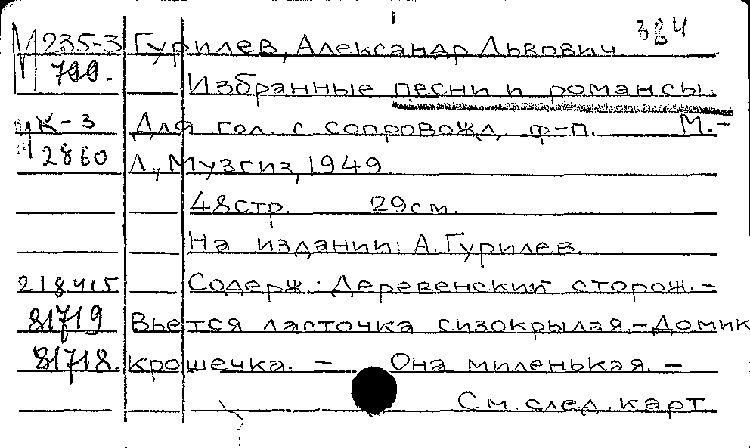 384
М 235-3 Гурилев, Александр Львович
799. Избранные песни и романсы.
К-3 Для гол. с сопровожд. ф-п. М.-
2860 Л., Музгиз, 1949.
48 стр. 29 см.
На издании: А. Гурилев.
218415 Содерж.: Деревенский сторож.-
81719 Вьется ласточка сизокрылая.-Домик
81718. крошечка. - Она миленькая. -
См. след. карт.